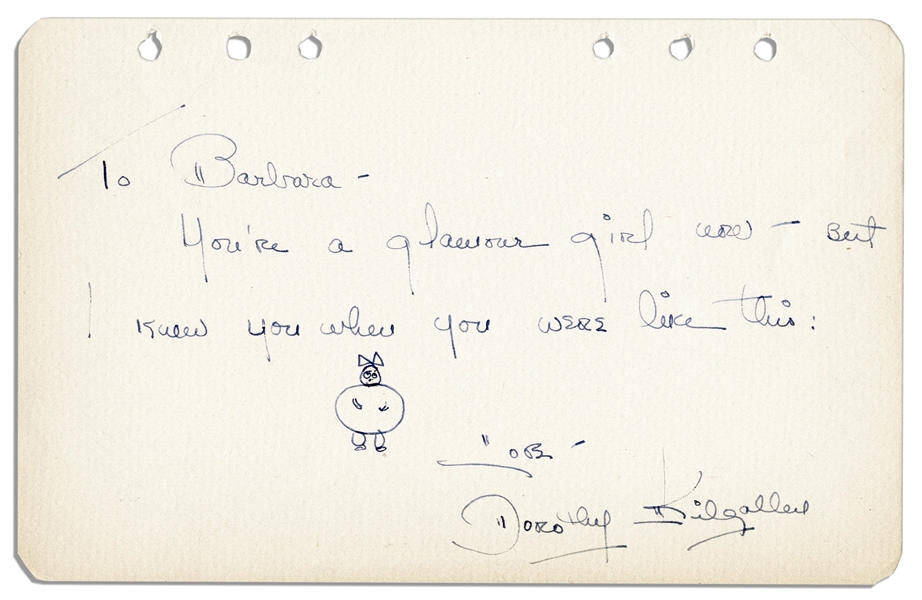 To Barbara -
You're a glamour girl now - but
I knew you when you were like this:
Dorothy Kilgallen